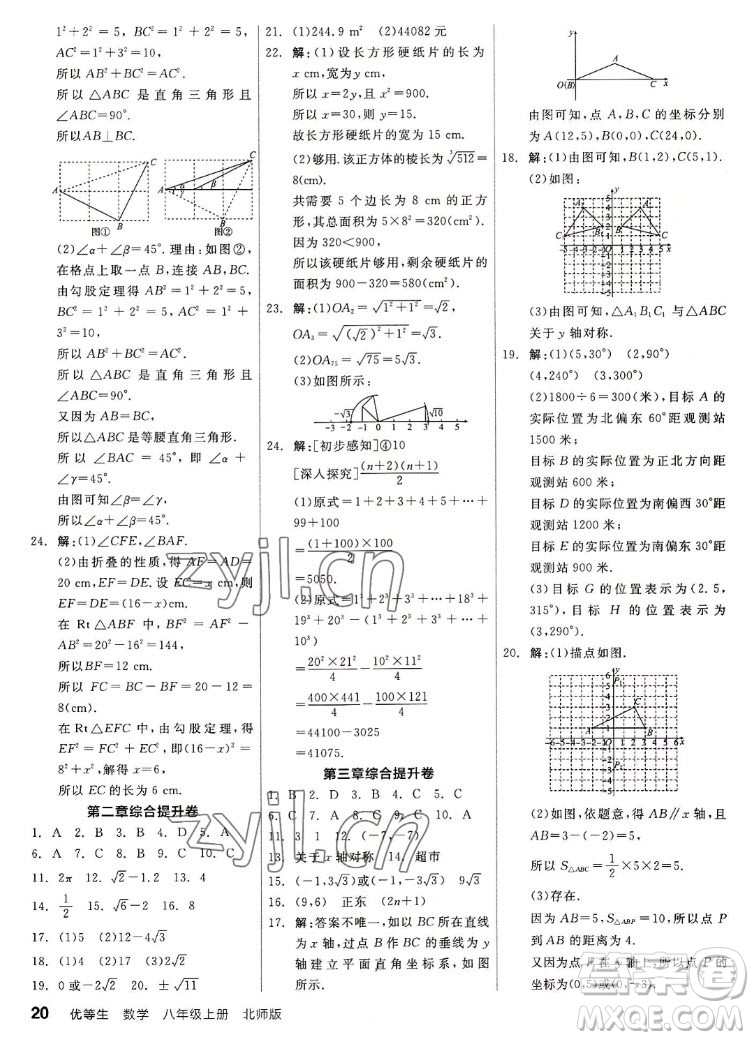 1²+2²=5, BC²=1²+2²=5,
AC²=1²+3²=10,
所以 AB²+BC²=AC².
所以 △ABC 是直角三角形且
∠ABC=90°.
所以AB⊥BC.
A
B
C
图①
A
B
C
α
β
图②
(2)∠α+∠β=45°. 理由:如图②,
在格点上取一点 B,连接 AB,BC.
由勾股定理得 AB²=1²+2²=5,
BC²=1²+2²=5,AC²=1²+
3²=10,
所以 AB²+BC²=AC².
所以 △ABC 是直角三角形且
∠ABC=90°.
又因为 AB=BC,
所以△ABC是等腰直角三角形.
所以 ∠BAC=45°,即∠α+
∠γ=45°.
由图可知∠β=∠γ,
所以∠α+∠β=45°.
24. 解:(1)∠CFE,∠BAF.
(2)由折叠的性质,得 AF=AD=
20 cm,EF=DE. 设 EC=x cm,则
EF=DE=(16-x)cm.
在 Rt△ABF 中,BF²=AF²-
AB²=20²-16²=144,
所以BF=12 cm.
所以 FC=BC-BF=20-12=
8(cm).
在 Rt△EFC 中,由勾股定理,得
EF²=FC²+EC²,即(16-x)²=
8²+x²,解得 x=6,
所以 EC的长为 6 cm.
第二章综合提升卷
1. A 2. B 3. D 4. D 5. A
6. A 7. A 8. B 9. C 10. C
11. 2π 12. √2 13. √5
14. 1/2 15. -2√2 16. 8
17. (1)5 (2)12-4√3
18. (1)4 (2)17
19. 0 或-2√2 20. ±√11
21. (1)244.9 m² (2)44082元
22. 解:(1)设长方形硬纸片的长为
x cm,宽为y cm,
所以 x=2y,x²=900.
所以 x=30,则 y=15.
故长方形硬纸片的宽为 15 cm.
(2)够用.该正方体的棱长为∛512=
8(cm).
共需要 5 个边长为 8 cm 的正方
形,其总面积为 5×8²=320(cm²).
因为 320<900,
所以硬纸片够用,剩余硬纸片的
面积为 900-320=580(cm²).
23. 解:(1)OA₂=√(1²+1²)=√2,
OA₃=√((√2)²+1²)=√3.
(2)OA₇₅=√75=5√3.
(3)如图所示:
-√3
√10
-3 -2 -1 0 1 2 3 4
24. 解:[初步感知]④10
[深入探究](n+2)(n+1)/2
(1)原式=1+2+3+4+5+…+
99+100
=(1+100)×100/2
=5050.
(2)原式=1³+2³+3³+…+18³+
19³+20³-(1³+2³+3³+…+
10³)
=20²×21²/4-10²×11²/4
=400×441/4-100×121/4
=44100-3025
=41075.
第三章综合提升卷
1. B 2. D 3. B 4. C 5. C
6. C 7. C 8. B 9. C 10. C
11. 3 1 12. (-7,-7)
13. 关于x轴对称 14. 超市
15. (-1,3√3)或(-1,-3√3) 9√3
16. (9,6) 正东 (2n+1)
17. 解:答案不唯一,如以 BC 所在直线
为 x 轴,过点 B 作BC 的垂线为 y
轴建立平面直角坐标系,如图
所示.
y
A
O(B)
C
x
由图可知,点 A,B,C 的坐标分别
为 A(12,5),B(0,0),C(24,0).
18. 解:(1)由图可知,B(1,2),C(5,1).
(2)如图:
(3)由图可知,△A₁B₁C₁ 与△ABC
关于 y 轴对称.
19. 解:(1)(5,30°) (2,90°)
(4,240°) (3,300°)
(2)1800÷6=300(米),目标 A的
实际位置为北偏东 60°距观测站
1500 米;
目标 B 的实际位置为正北方向距
观测站 600 米;
目标 D的实际位置为南偏西 30°距
观测站 1200 米;
目标 E 的实际位置为南偏东 30°距
观测站 900 米.
(3)目标 G 的位置表示为(2.5,
315°),目标 H 的位置表示为
(3,290°).
20. 解:(1)描点如图.
(2)如图,依题意,得 AB∥x 轴,且
AB=3-(-2)=5,
所以 S△ABC=1/2×5×2=5.
(3)存在.
因为 AB=5,S△ABP=10,所以点 P
到AB的距离为 4.
又因为点P在y轴上,所以点 P的
20 优等生 数学 八年级上册 北师版
zyjl.cn
zyjl.cn